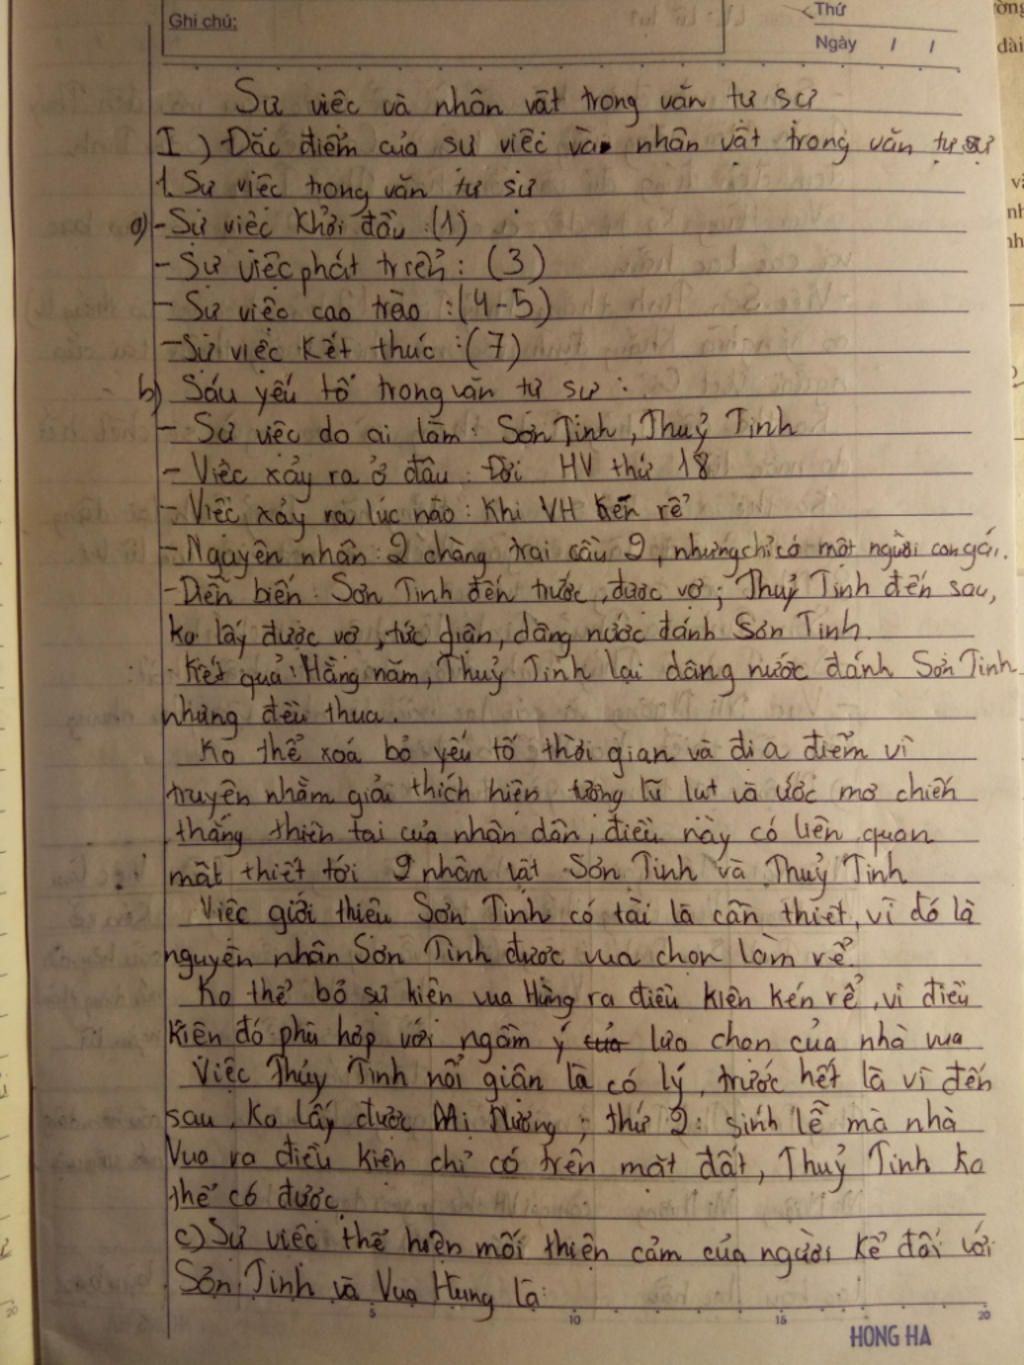 Ghi chú:
Thứ
Ngày / /
Sự việc và nhân vật trong văn tự sự
I) Đặc điểm của sự việc và nhân vật trong văn tự sự
1. Sự việc trong văn tự sự
a) - Sự việc khởi đầu : (1)
- Sự việc phát triển : (3)
- Sự việc cao trào : (4-5)
- Sự việc kết thúc : (7)
b) Sáu yếu tố trong văn tự sự :
- Sự việc do ai làm : Sơn Tinh, Thuỷ Tinh
- Việc xảy ra ở đâu : Đời HV thứ 18
- Việc xảy ra lúc nào : Khi VH kén rể
- Nguyên nhân : 2 chàng trai cầu 2, nhưng chỉ có một người con gái.
- Diễn biến : Sơn Tinh đến trước, được vợ ; Thuỷ Tinh đến sau,
ko lấy được vợ, tức giận, dâng nước đánh Sơn Tinh.
- Kết quả : Hằng năm, Thuỷ Tinh lại dâng nước đánh Sơn Tinh
nhưng đều thua.
Ko thể xoá bỏ yếu tố thời gian và địa điểm vì
truyện nhằm giải thích hiện tượng lũ lụt và ước mơ chiến
thắng thiên tai của nhân dân, điều này có liên quan
mật thiết tới 2 nhân vật Sơn Tinh và Thuỷ Tinh
Việc giới thiệu Sơn Tinh có tài là cần thiết, vì đó là
nguyên nhân Sơn Tinh được vua chọn làm rể.
Ko thể bỏ sự kiện vua Hùng ra điều kiện kén rể, vì điều
kiện đó phù hợp với ngầm ý của lựa chọn của nhà vua
Việc Thủy Tinh nổi giận là có lý, trước hết là vì đến
sau, ko lấy được Mị Nương ; thứ 2 : sính lễ mà nhà
Vua ra điều kiện chỉ có trên mặt đất, Thuỷ Tinh ko
thể có được.
c) Sự việc thể hiện mối thiện cảm của người kể đối với
Sơn Tinh và Vua Hùng là :
5 10 15 20
HONG HA